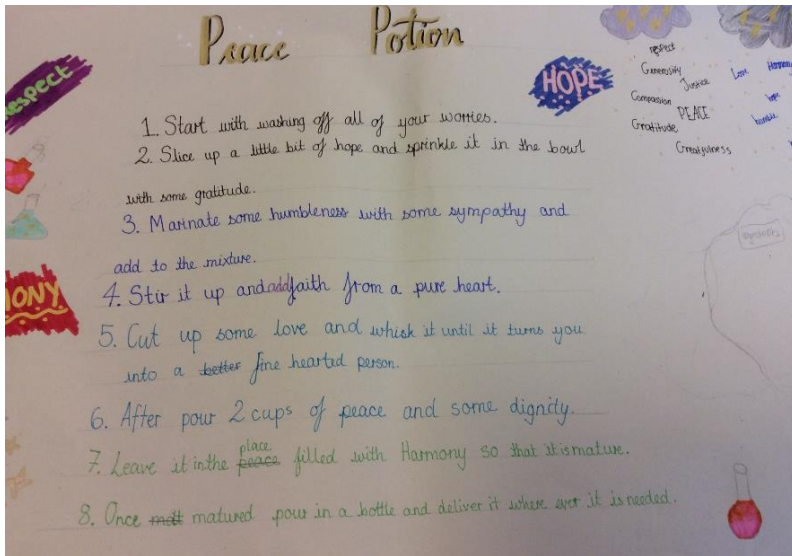 Peace Potion
Respect
HOPE
respect
Generosity
Justice
Love
Compassion
PEACE
hope
Gratitude
humble
Greatfulness
1. Start with washing off all of your worries.
2. Slice up a little bit of hope and sprinkle it in the bowl
with some gratitude.
3. Marinate some humbleness with some sympathy and
add to the mixture.
4. Stir it up and add faith from a pure heart.
MONY
5. Cut up some love and whisk it until it turns you
into a better fine hearted person.
6. After pour 2 cups of peace and some dignity.
7. Leave it in the peace place filled with Harmony so that it is mature.
8. Once matured pour in a bottle and deliver it where ever it is needed.